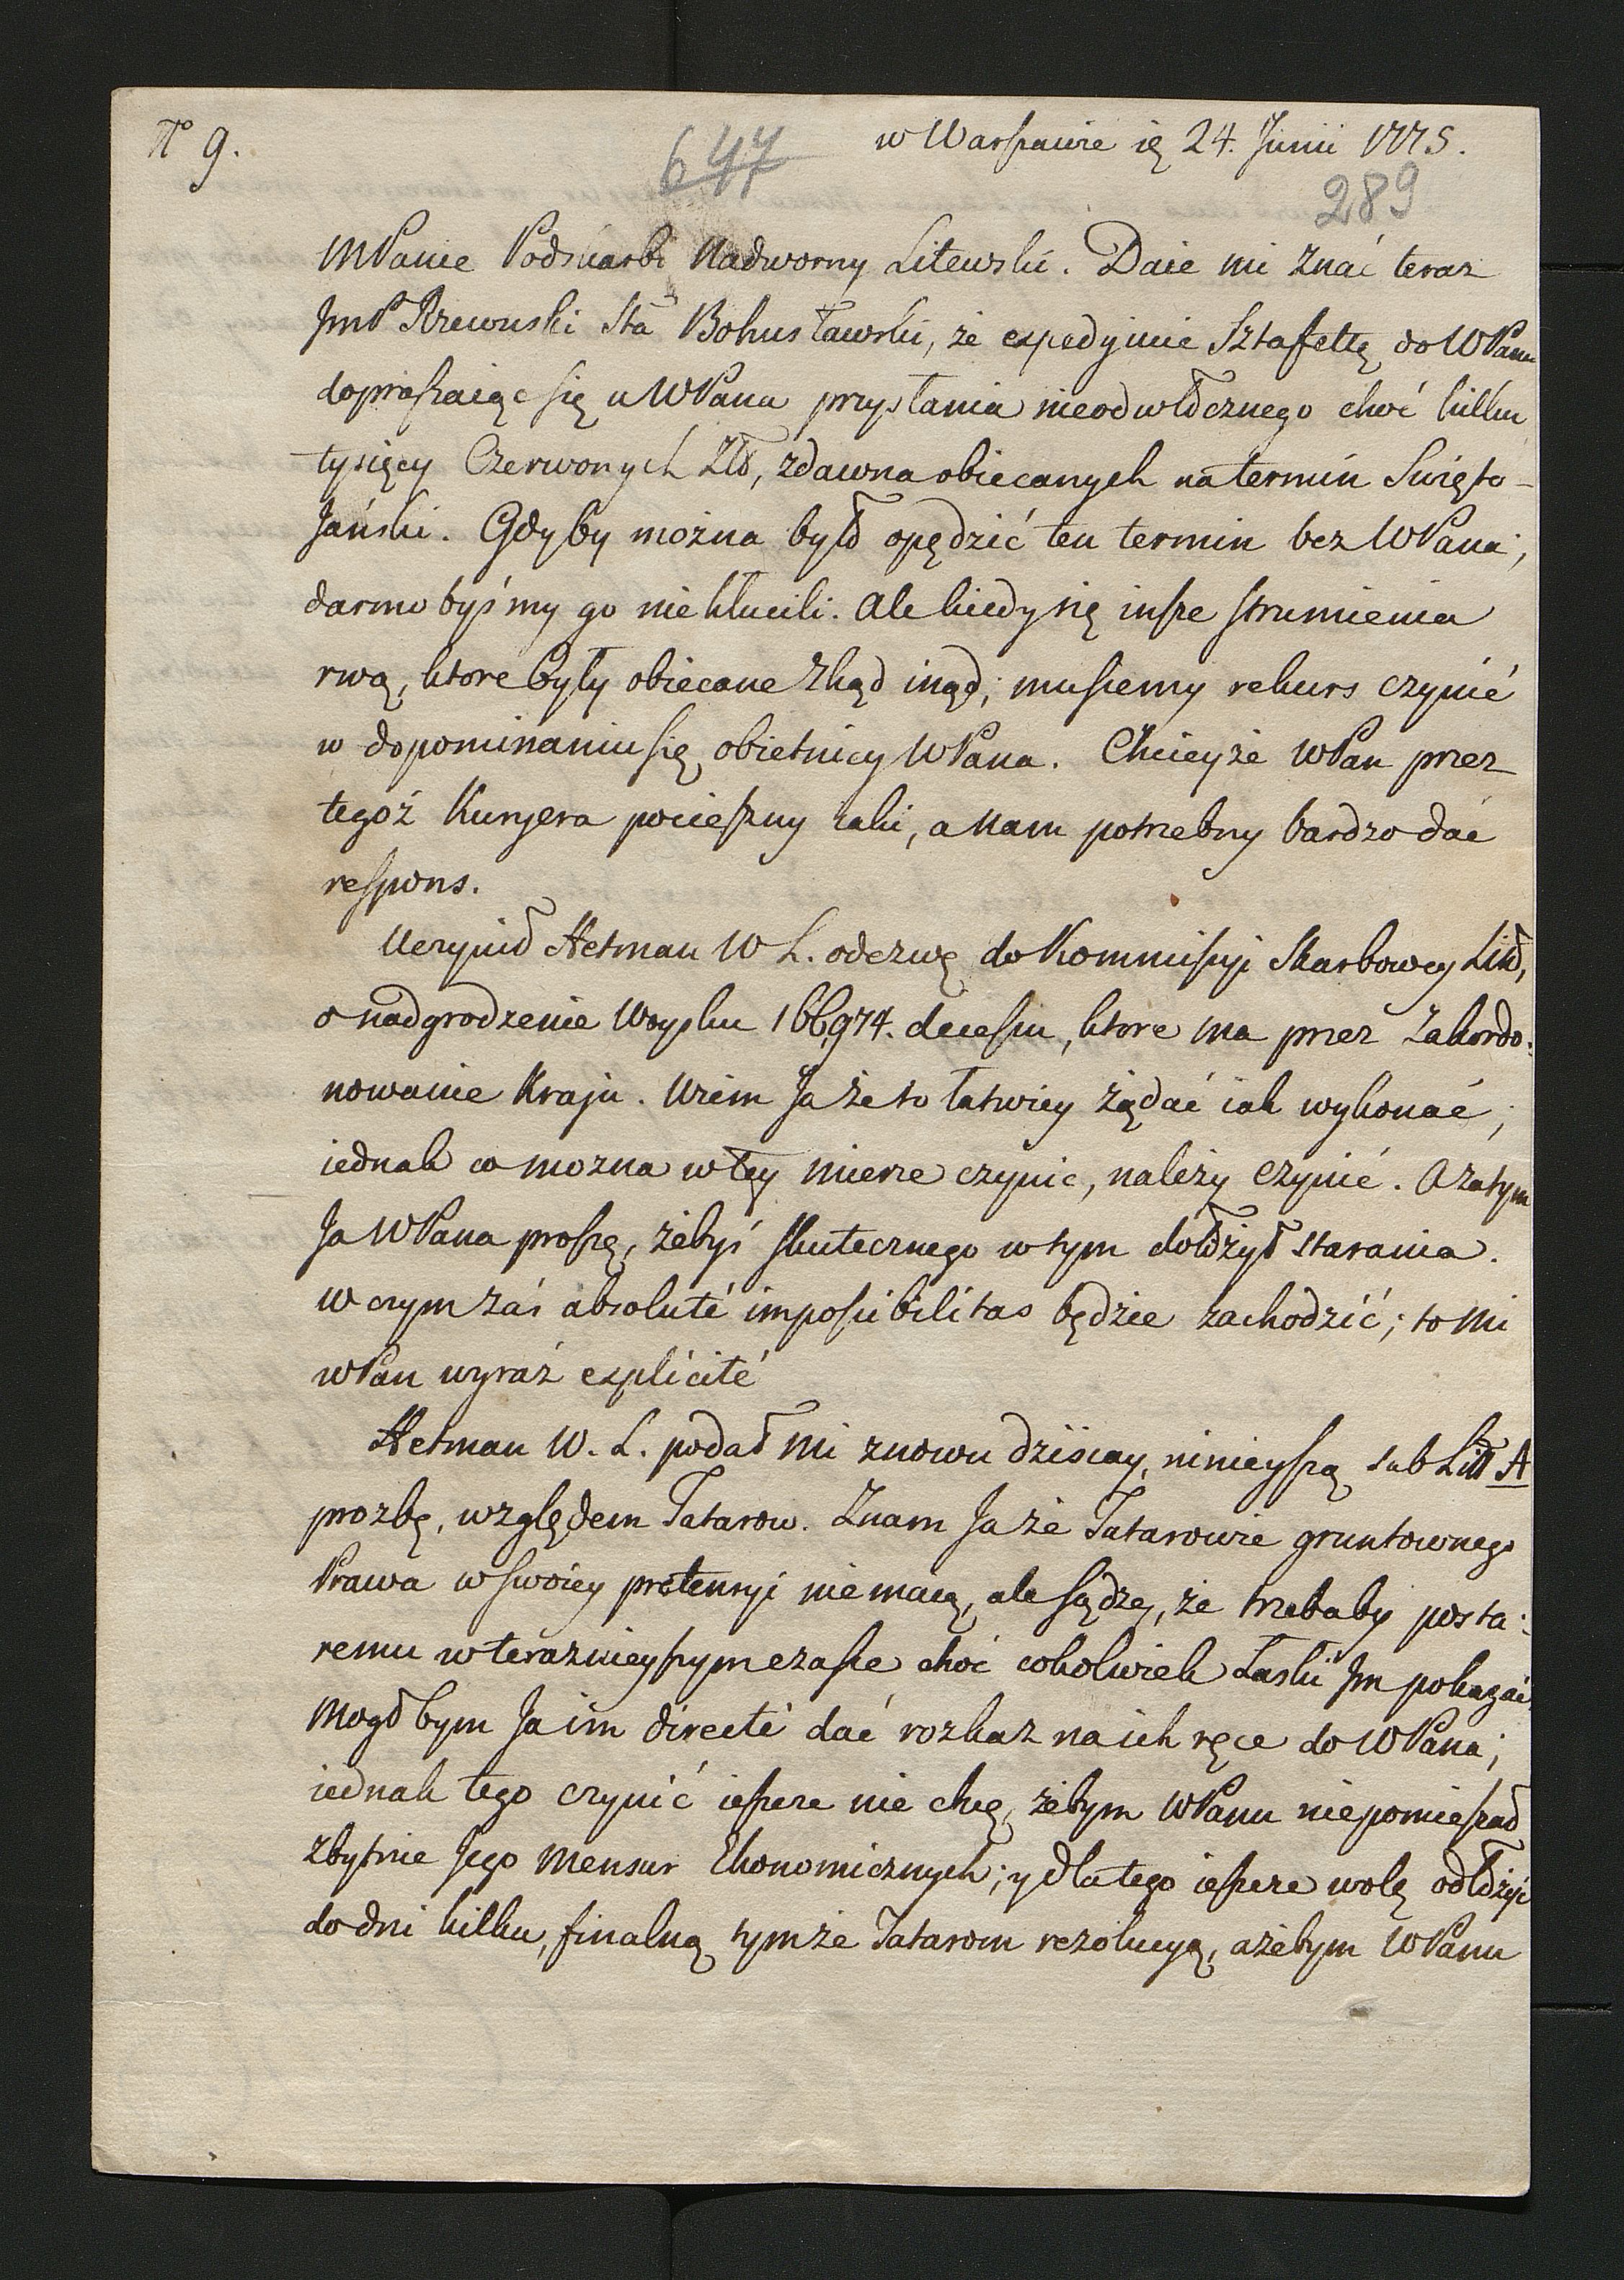 N° 9.
w Warszawie ię 24. Junii 1775.
647
289
MPanie Podskarbi Nadworny Litewski. Daie mi znać teraz
JmP Rzewuski Sta Bohusławski, że expedyiuie Sztafettę do WPana
dopraszaiąc się u WPana przysłania nieodwłocznego choć kilku
tysięcy Czerwonych Złł, zdawna obiecanych na termin Swięto-
Jański. Gdyby można było opędzić ten termin bez WPana,
darmo byśmy go niekłucili. Ale kiedy się insze strumienia
rwą, ktore były obiecane zkąd inąd; musiemy rekurs czynić
w dopominaniu się obietnicy WPana. Chcieyże WPan przez
tegoż Kuryera pocieszny taki, a nam potrzebny bardzo dać
respons.
Uczynił Hetman W L. odezwę do Kommissyi Skarbowey Litt,
o nadgrodzenie Woysku 166,974. decessu, ktore ma przez Zakordo:
nowanie Kraju. Wiem Ja że to łatwiey żądać iak wykonać;
iednak co mozna w tey mierze czynic, należy czynić. A zatym
Ja WPana proszę, żebyś skutecznego w tym dołożył starania.
W czym zaś absoluté impossibilitas będzie zachodzić; to mi
WPan wyraź explicité
Hetman W. L. podał mi znowu dzisiay, ninieyszą sub Litt A
prozbę, względem Tatarow. Znam Ja że Tatarowie gruntownego
Prawa w swoiey pretensyi nie maią, ale sądzę, że trzebaby posta:
remu w terazniejszym czasie choć cokolwiek Łaski Jm pokazać,
mogłbym Ja im directé dać rozkaz na ich ręce do WPana;
iednak tego czynić ieszcze nie chcę, żebym WPanu niepomieszał
zbytnie Jego mensur Ekonomicznych; y dlatego ieszcze wolę odłożyć
do dni kilku, finalną tymże Tatarom rezolucyą, ażebym WPanu